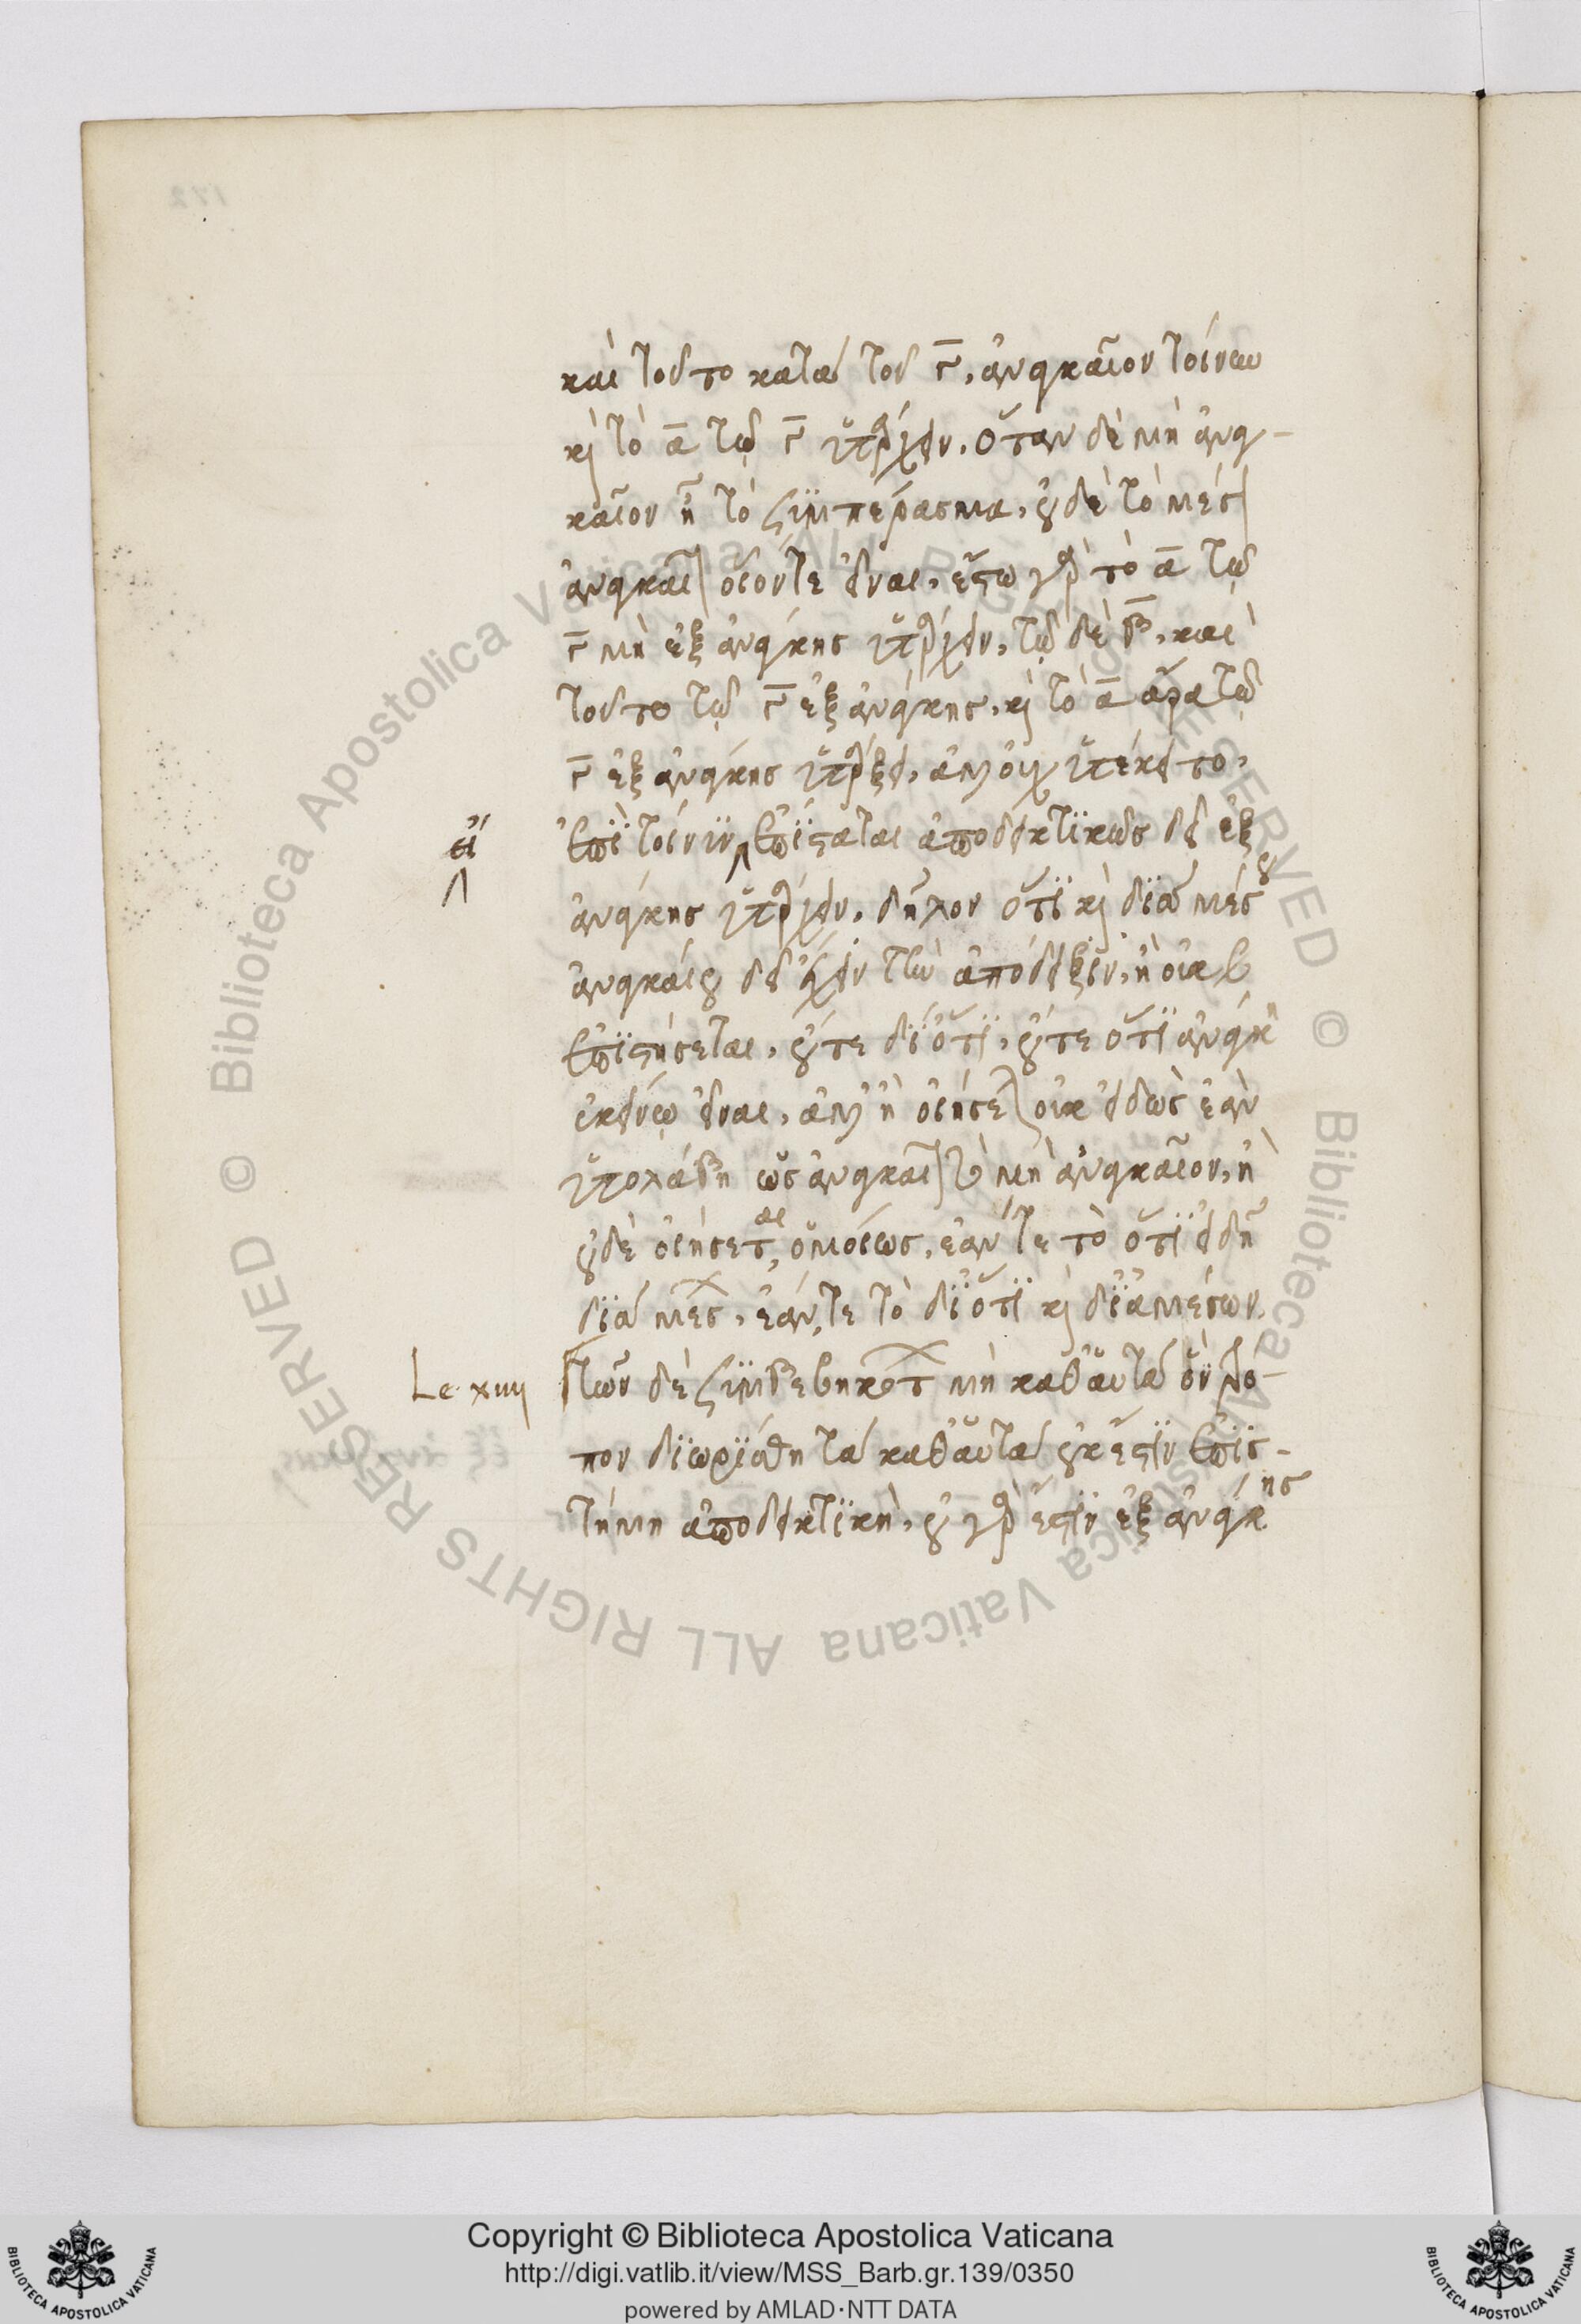 καὶ τοῦτο κατὰ τοῦ Γ, ἀναγκαῖον τοίνυν
καὶ τὸ Α τῷ Γ ὑπάρχειν. ὅταν δὲ μὴ ἀναγ-
καῖον ᾖ τὸ συμπέρασμα, οὐδὲ τὸ μέσον
ἀναγκαῖον οἷόν τε εἶναι. ἔστω γὰρ τὸ Α τῷ
Γ μὴ ἐξ ἀνάγκης ὑπάρχειν, τῷ δὲ Β, καὶ
τοῦτο τῷ Γ ἐξ ἀνάγκης. καὶ τὸ Α ἄρα τῷ
Γ ἐξ ἀνάγκης ὑπάρξει. ἀλλ' οὐχ ὑπέκειτο.
εἰ
Ἐπεὶ τοίνυν ἐπίσταται ἀποδεικτικῶς δεῖ ἐξ
ἀνάγκης ὑπάρχειν, δῆλον ὅτι καὶ διὰ μέσου
ἀναγκαίου δεῖ ἔχειν τὴν ἀπόδειξιν. ἢ οὐκ
ἐπιστήσεται, οὔτε διότι, οὔτε ὅτι ἀνάγκη
ἐκείνῳ εἶναι, ἀλλ' ἢ οἰήσεται οὐκ εἰδὼς ἐὰν
ὑπολάβῃ ὡς ἀναγκαῖον τὸ μὴ ἀναγκαῖον, ἢ
οὐδὲ οἰήσεται, ὁμοίως, ἐάν τε τὸ ὅτι εἰδῇ
διὰ μέσων, ἐάν τε τὸ διότι καὶ δι' ἀμέσων.
Le. xiiij
Τῶν δὲ συμβεβηκότων μὴ καθ' αὑτὰ ὃν τρό-
πον διωρίσθη τὰ καθ' αὑτὰ οὐκ ἔστιν ἐπισ-
τήμη ἀποδεικτική. οὐ γὰρ ἔστιν ἐξ ἀνάγκης
Copyright © Biblioteca Apostolica Vaticana
http://digi.vatlib.it/view/MSS_Barb.gr.139/0350
powered by AMLAD·NTT DATA
BIBLIOTECA APOSTOLICA VATICANA
BIBLIOTECA APOSTOLICA VATICANA
© Biblioteca Apostolica Vaticana ALL RIGHTS RESERVED © Biblioteca Apostolica Vaticana ALL RIGHTS RESERVED